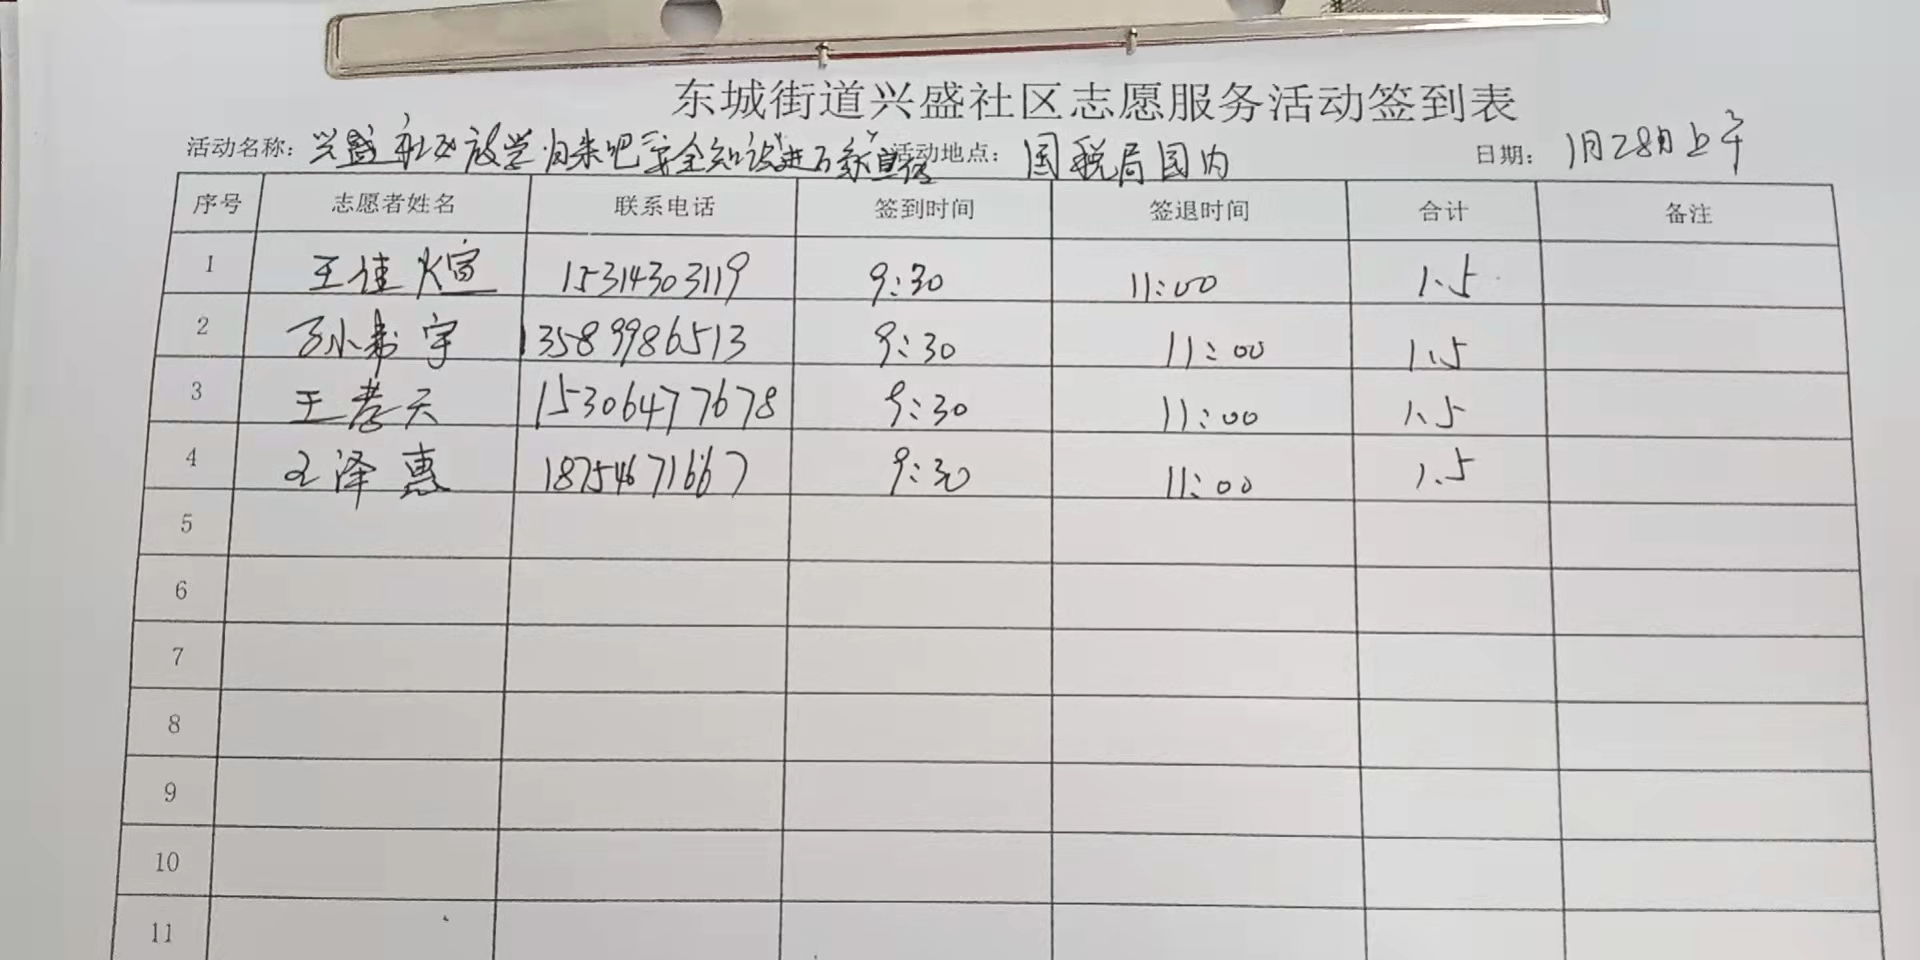 东城街道兴盛社区志愿服务活动签到表
活动名称：兴盛社区放学归来吧"安全知识进万家"宣传 活动地点：国税局园内 日期：1月28日上午
序号 志愿者姓名 联系电话 签到时间 签退时间 合计 备注
1 王佳煊 15314303119 9:30 11:00 1.5
2 宇 13589986513 9:30 11:00 1.5
3 王孝天 15306477678 9:30 11:00 1.5
4 王泽惠 18754671667 9:30 11:00 1.5
5
6
7
8
9
10
11